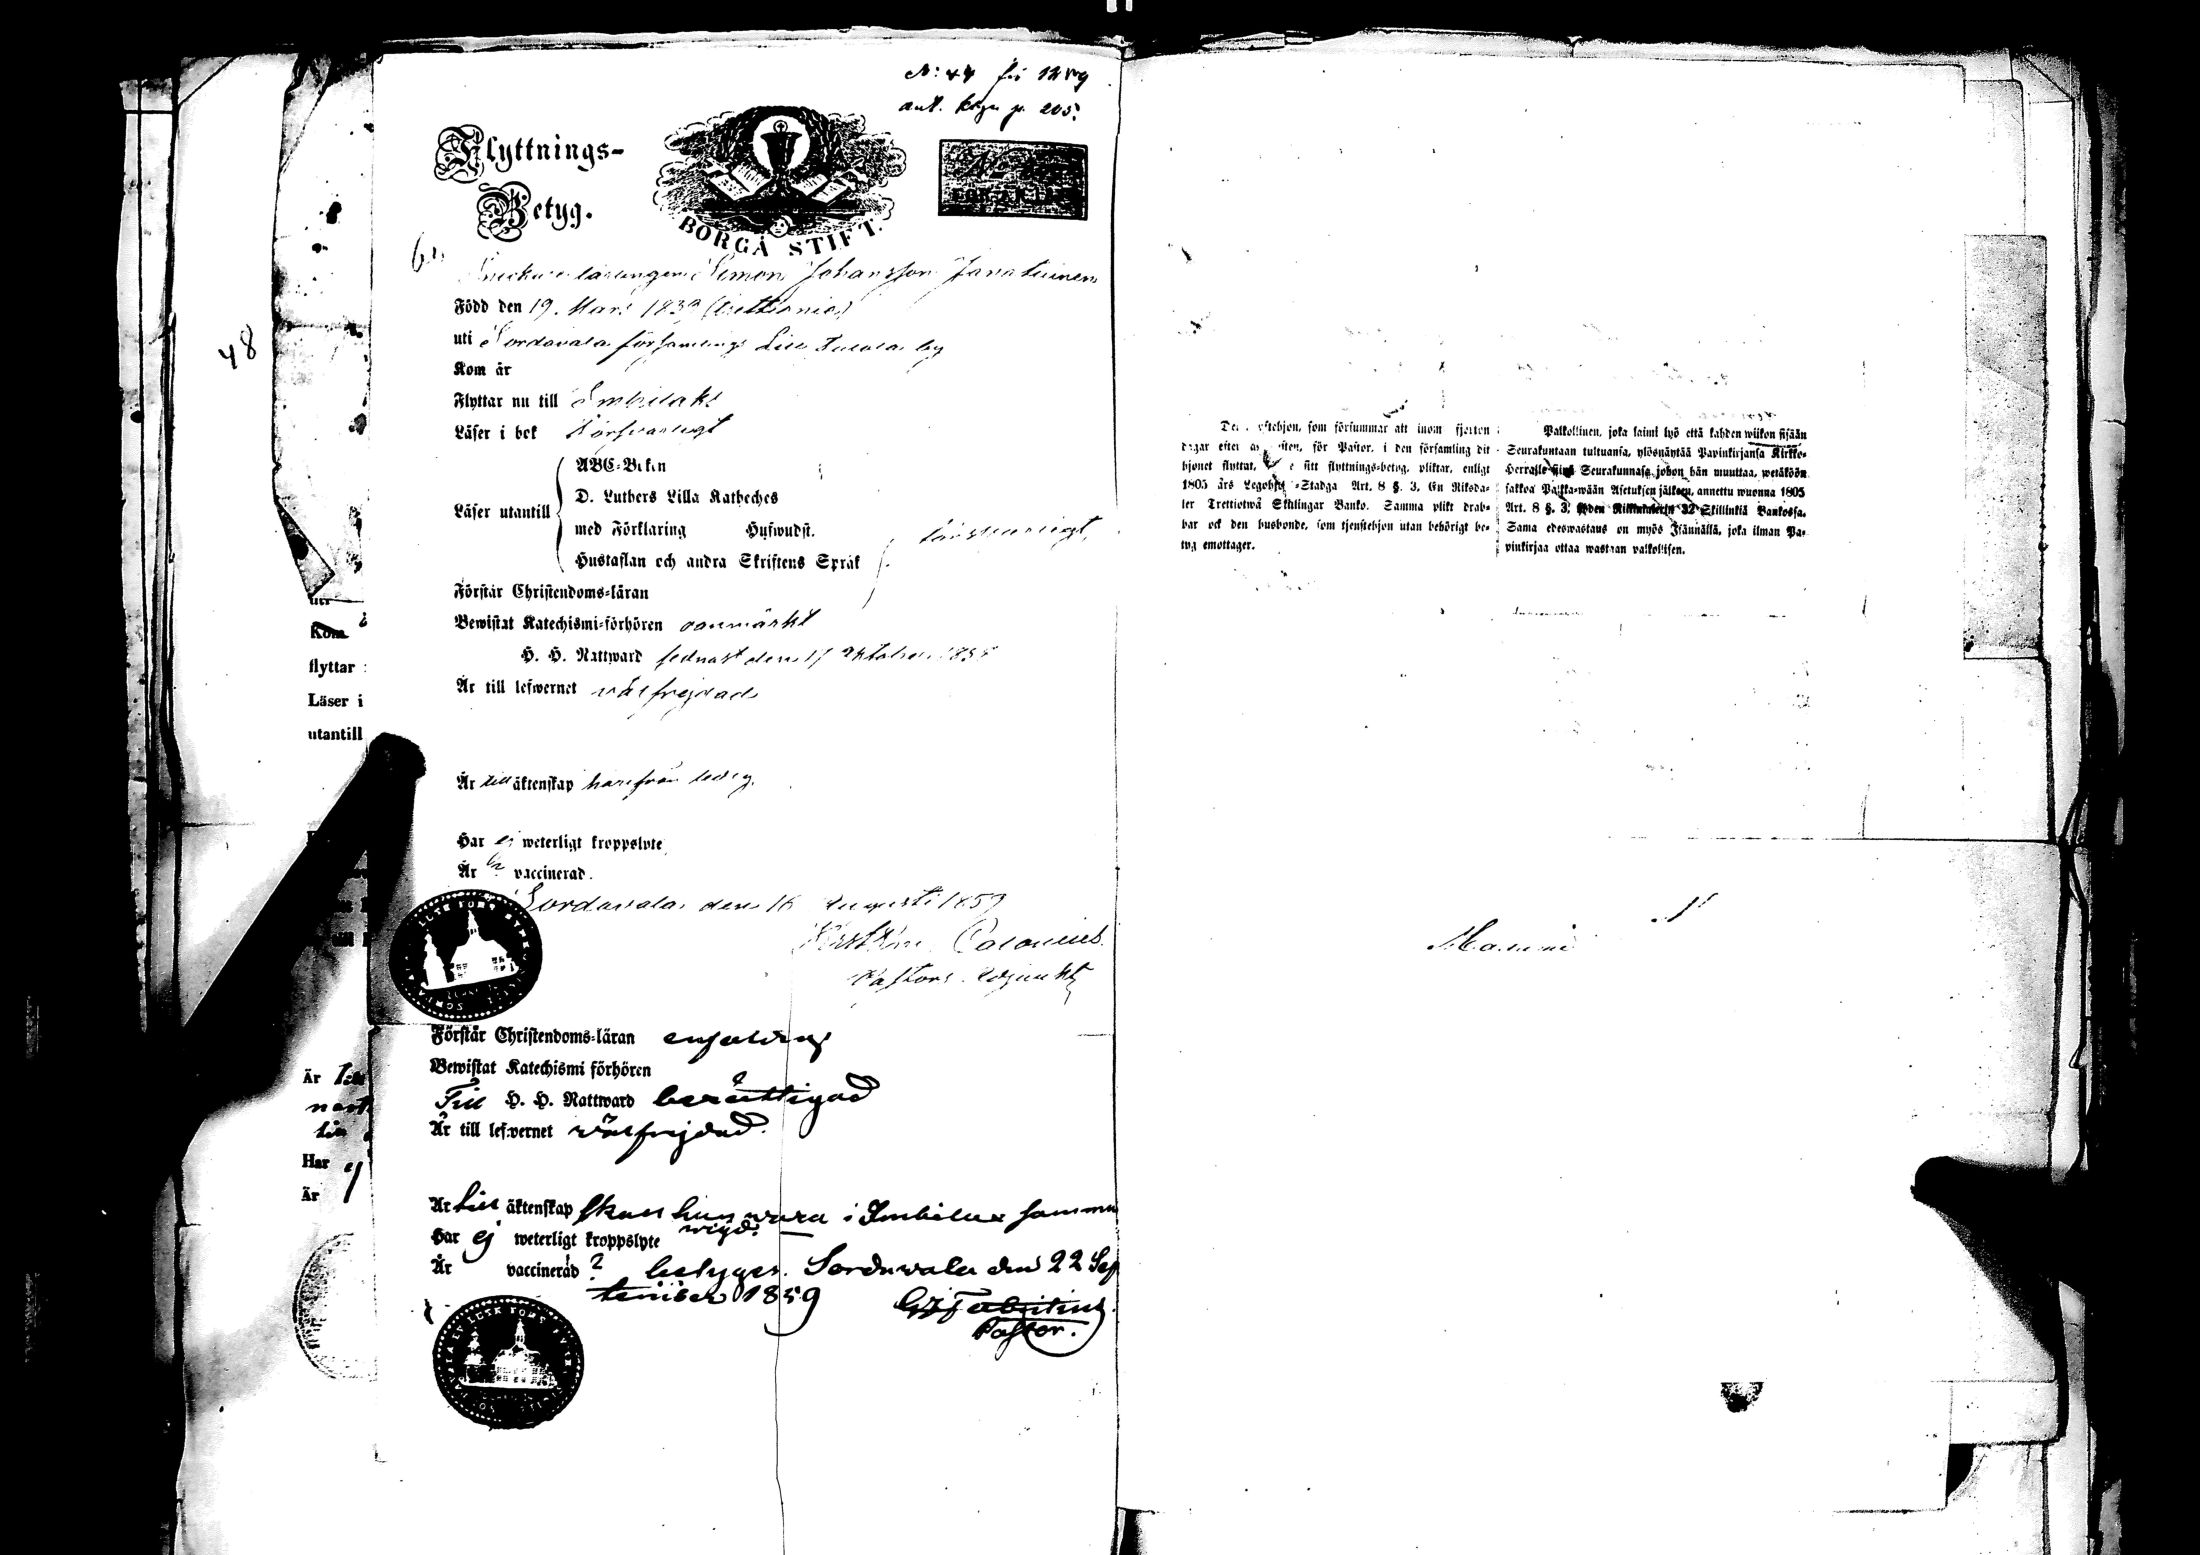 N: 44 för 1859
ant. kbgn p. 205.
Flyttnings-
Betyg.
BORGÅ STIFT.
48
lärlingen Simon Johansson
Född den 19. Mars 1839 (trettionio)
uti Sordavala församling by
Kom år
Flyttar nu till Imbilaks
Läser i bok Försvarligt
ABC-Boken
D. Luthers Lilla Katheches
Läser utantill
med Förklaring Hufwudst.
Hustaflan och andra Skriftens Språk
försvarligt
Förstår Christendoms-läran
Bewistat Katechismi-förhören oanmärkt
H. H. Nattward sednast den 17 Oktober
Är till lefwernet välfrejdad
Är till äktenskap härifrån ledig.
Har ej weterligt kroppslyte
Är vaccinerad.
Sordavala den 16 Augusti 1859
Pastors Adjunkt
Förstår Christendoms-läran enfaldigt
Bewistat Katechismi förhören
Till H. H. Nattward berättigad
Är till lefwernet wälfrejdad.
Är till äktenskap skall han wara i Imbilax
wigd.
Har ej weterligt kroppslyte
Är vaccinerad ? betygar. Sordawala den 22 Sep
tember 1859
Pastor.
Kom
flyttar
Läser i
utantill
Är
Har ej
Är
tjenstehjon, som försummar att inom fjorton
dagar efter för Pastor, i den församling dit
hjonet flyttat, sitt flyttnings-betyg, pliktar, enligt
1805 års Legohjons-Stadga Art. 8 §. 3. En Riksda-
ler Trettiotwå Skillingar Banko. Samma plikt drab-
bar ock den husbonde, som tjenstehjon utan behörigt be-
tyg emottager.
Palkollinen, joka laimi lyö että kahden wiikon sisään
Seurakuntaan tultuansa, ylösnäyttää Papinkirjansa Kirkko-
Herralle siinä Seurakunnasa johon hän muuttaa, wetäköön
sakkoa Palkka-wään Asetuksen jälkeen, annettu wuonna 1805
Art. 8 §. 3, yhden Riikintalerin 32 Skillinkiä Bankossa.
Sama edeswastaus on myös Isännällä, joka ilman Pa-
pinkirjaa ottaa wastaan palkollisen.